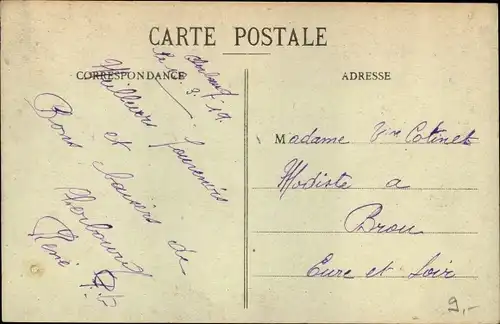 CARTE POSTALE
CORRESPONDANCE
ADRESSE
Cherbourg
le 3. 19.
Meilleurs Souvenirs
et
Bons baisers de
Cherbourg
René
Madame Vve Cotinet
Modiste a
Brou
Eure et Loir
9,-